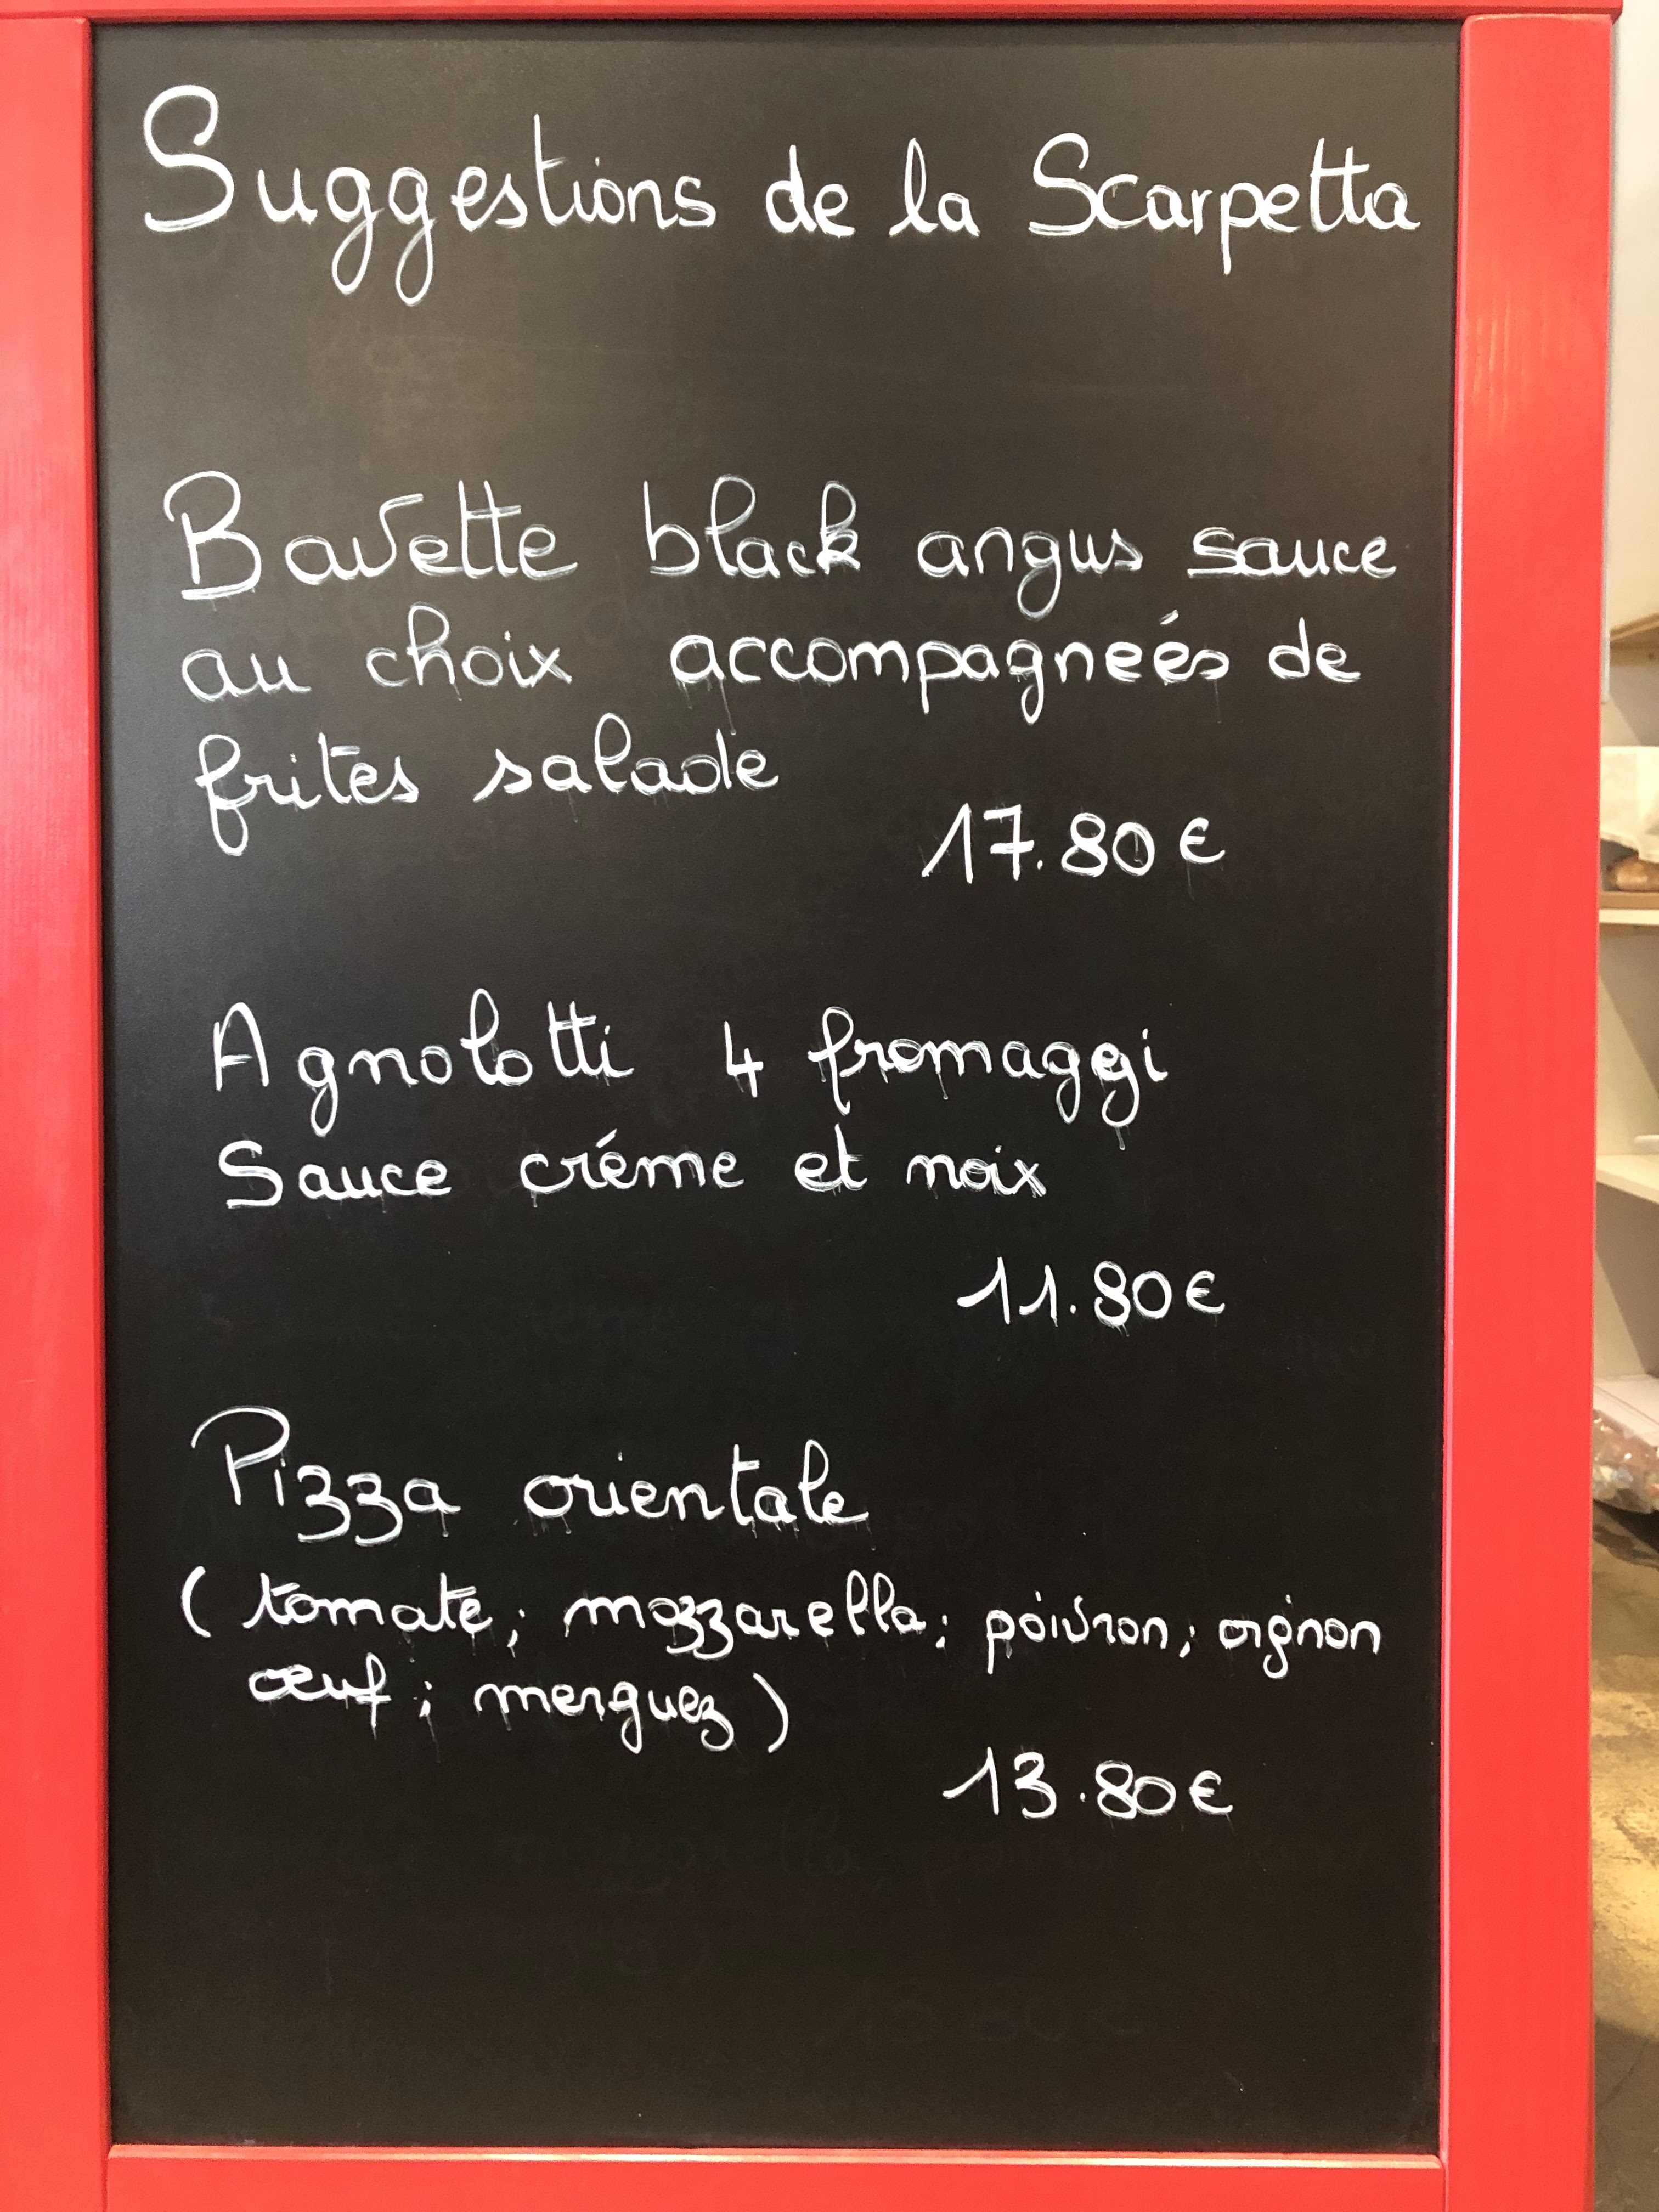 Suggestions de la Scarpetta
Bavette black angus sauce
au choix accompagneés de
frites salade
17.80€
Agnolotti 4 fromaggi
Sauce créme et noix
11.80€
Pizza orientale
(tomate; mozzarella; poivron; oignon
œuf; merguez)
13.80€